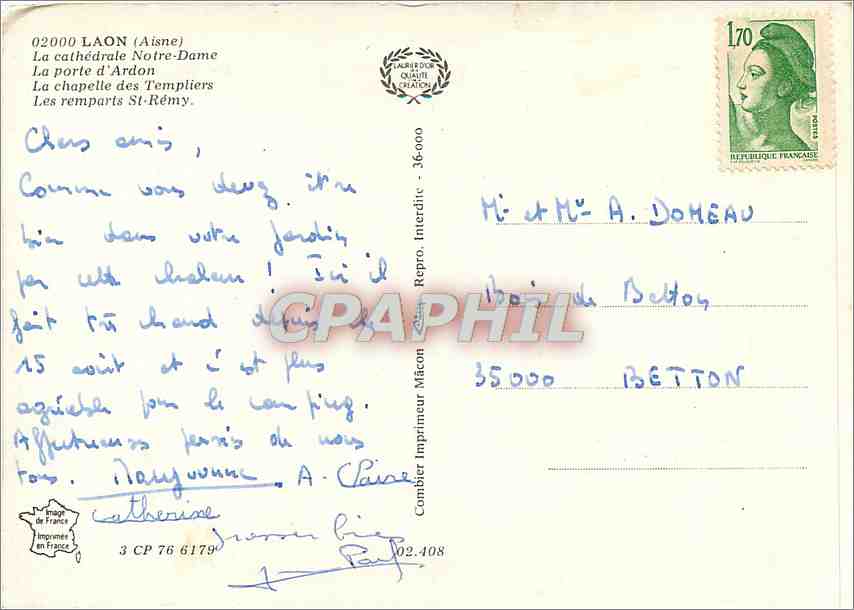 02000 LAON (Aisne)
La cathédrale Notre-Dame
La porte d'Ardon
La chapelle des Templiers
Les remparts St-Rémy.
LAURIER D'OR
DE LA
QUALITÉ
CRÉATION
1,70
POSTES
RÉPUBLIQUE FRANÇAISE
Chers amis,
Comme vous devez être
bien dans votre jardin
par cette chaleur ! Ici il
fait très chaud depuis le
15 août et c'est plus
agréable pour le camping.
Affectueuses pensées de nous
tous. Maryvonne A-Claire
Catherine
grosses bises
Mr et Mme A. DOMEAU
Bois de Betton
35000 BETTON
Combier Imprimeur Mâcon Repro. Interdite - 36-000
CPAPHIL
Image
de France
Imprimée
en France
3 CP 76 6179
02.408